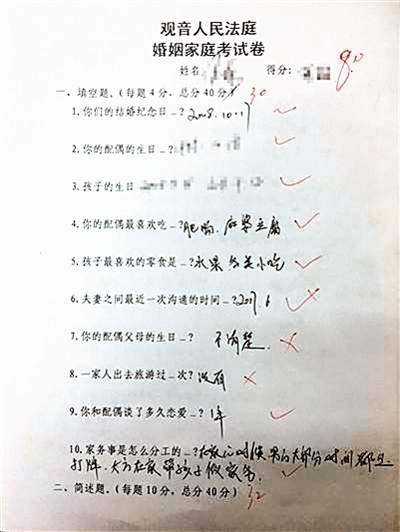 观音人民法庭
婚姻家庭考试卷
姓名 得分: 80
一、填空题.(每题4分,总分40分) 30
1.你们的结婚纪念日_?2008.10.17
2.你的配偶的生日_?
3.孩子的生日
4.你的配偶最喜欢吃_?肥肠、麻婆豆腐
5.孩子最喜欢的零食是_?水果 各类小吃
6.夫妻之间最近一次沟通的时间_?2017.6
7.你的配偶父母的生日_? 不清楚.
8.一家人出去旅游过_次?没有
9.你和配偶谈了多久恋爱_? 1年
10.家务事是怎么分工的_?在家的时候 男的大部分时间都是
打牌、女方在家带孩子做家务
二、简述题.(每题10分,总分40分) 32